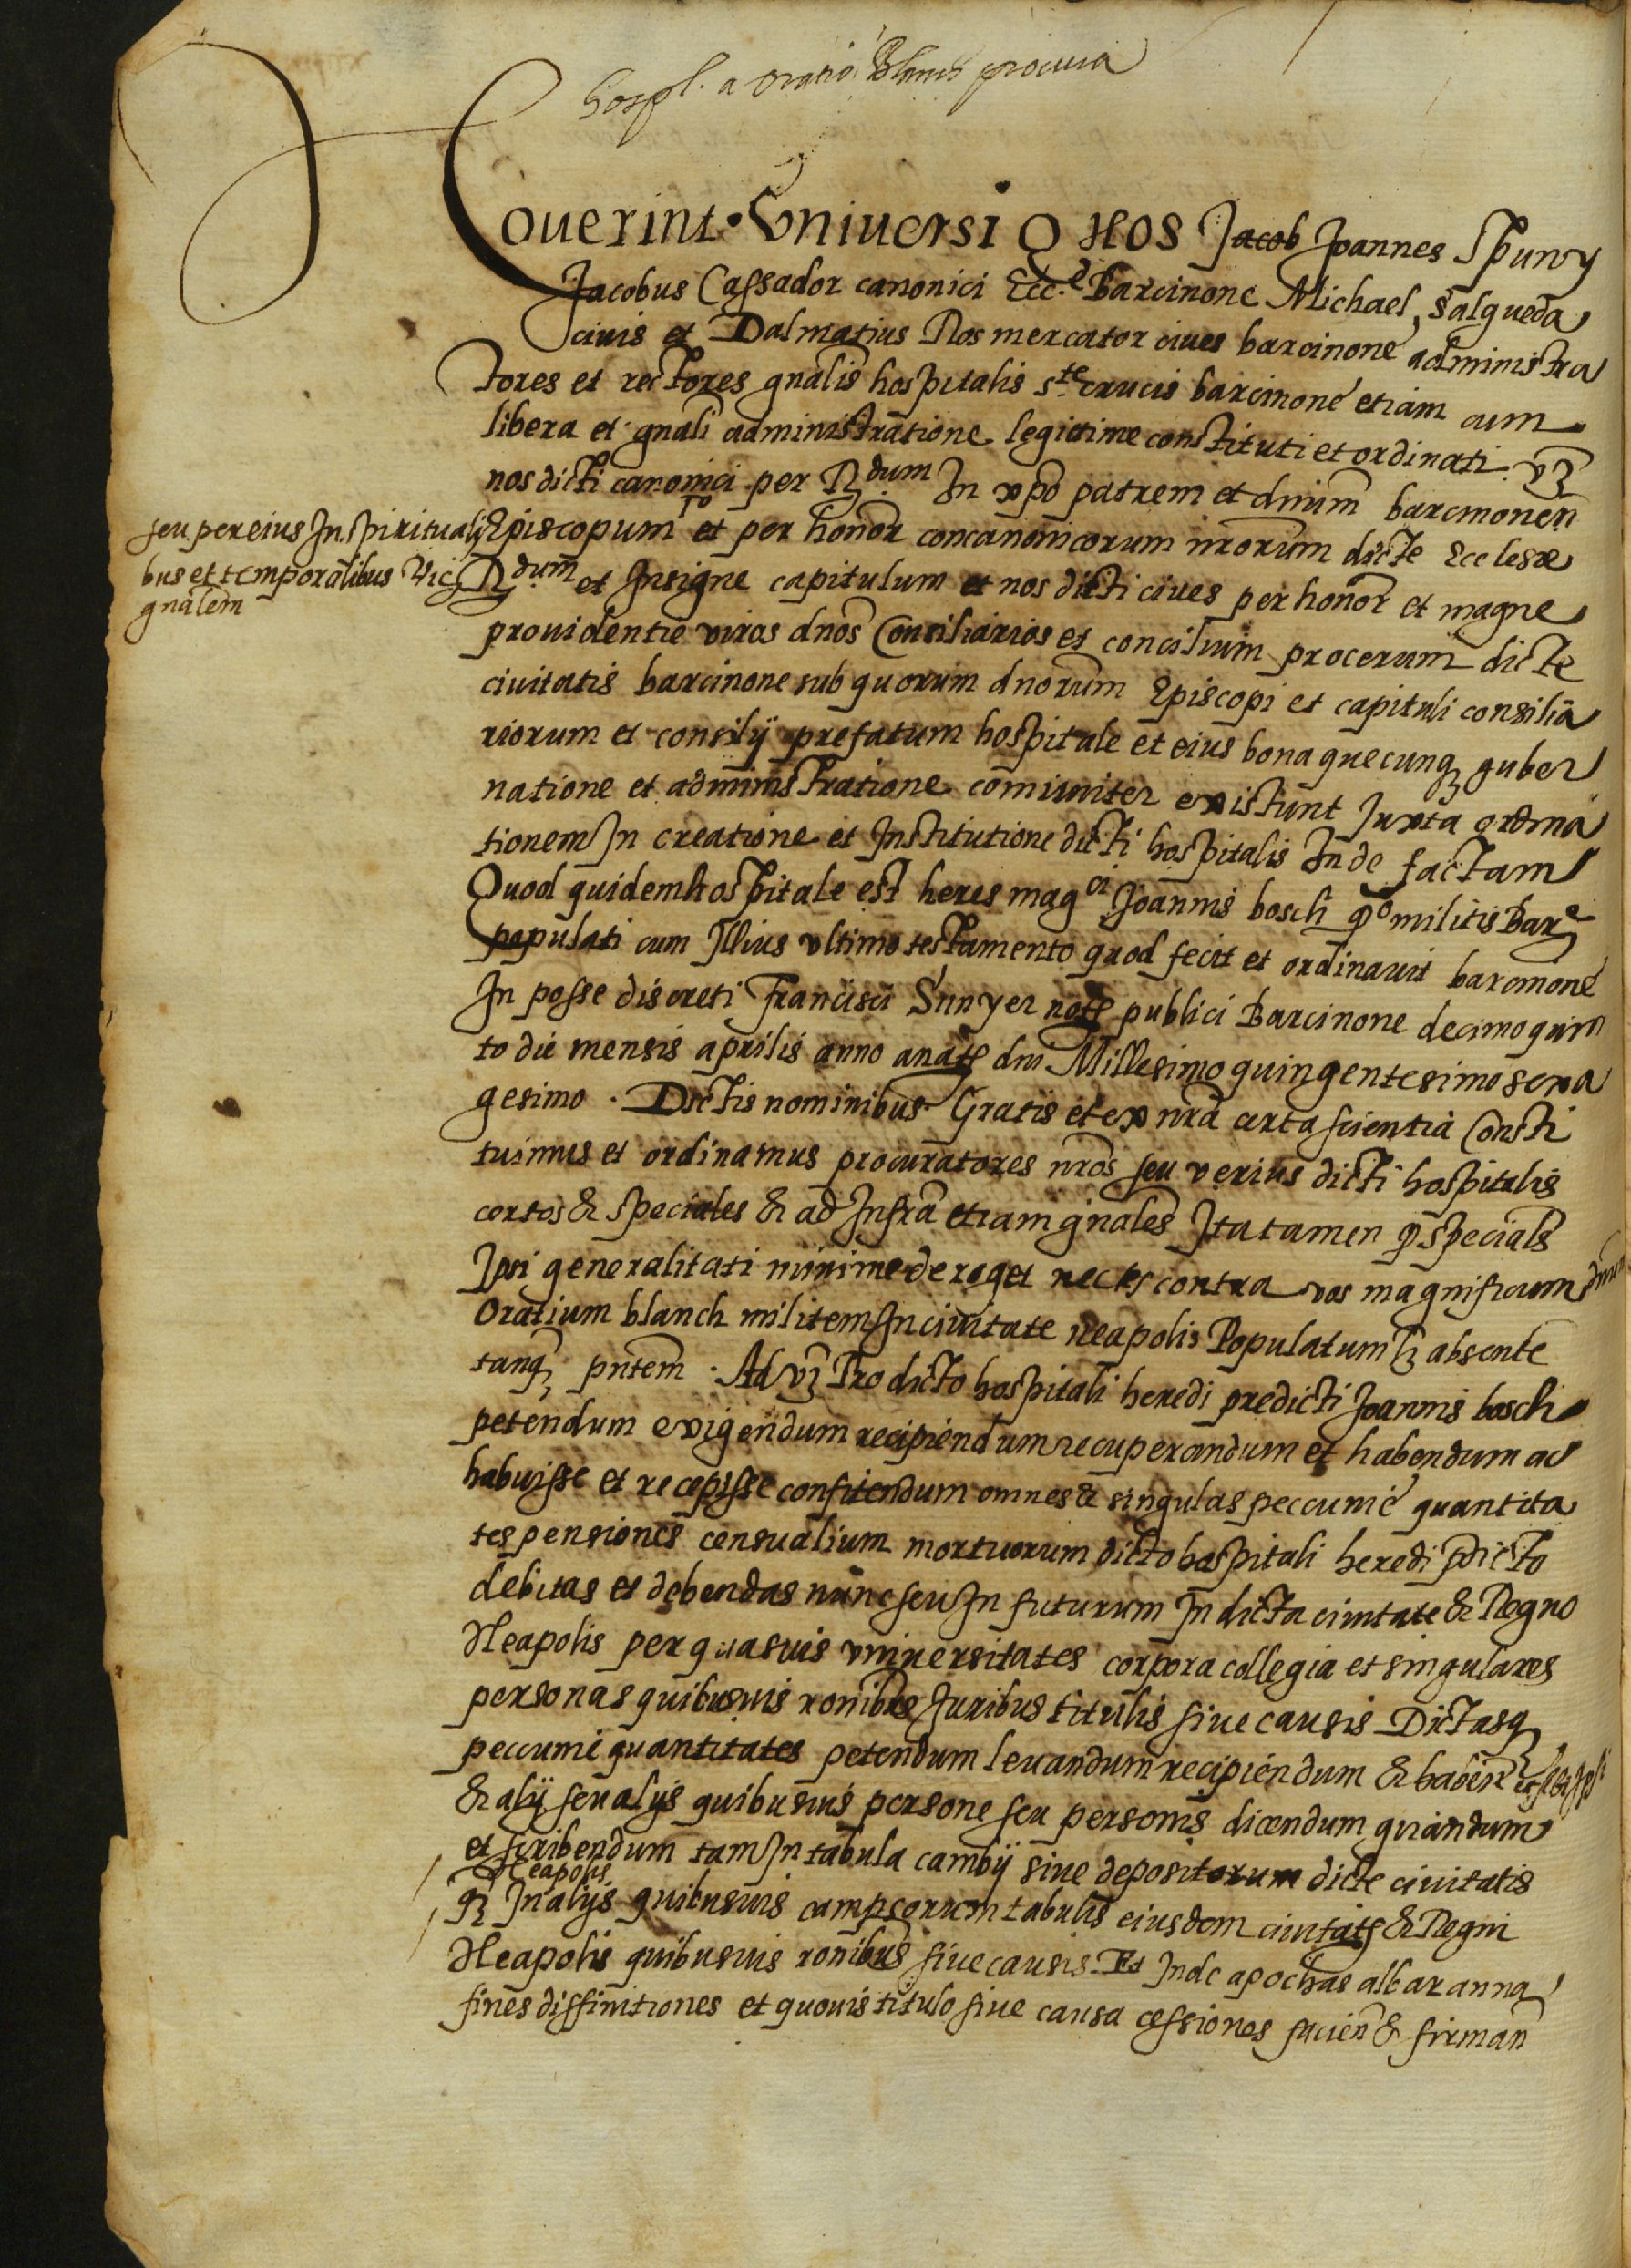 hospl. a oratio Blanch procura
Noverint · Vniuersi Q Nos Jacob Joannes Spuny
Jacobus Cassador canonici Ecc.e Barcinone Michael Salgueda
ciuis et Dalmatius Ros mercator ciues barcinone administra
tores et rectores gnalis hospitalis s.te crucis barcinone etiam cum
libera et gnali administratione legittime constituti et ordinati vz
nos dicti canonici per R.dum In xpo patrem et dnum barcinonen
Episcopum et per honor concanonicorum nrorum dicte Ecclesie
seu per eius In spirituali
bus et temporalibus Vic
gnalem
R.dum et Insigne capitulum et nos dicti ciues per honor et magne
prouidentie viros dnos Consiliarios et concilium procerum dicte
ciuitatis barcinone sub quorum dnorum Episcopi et capituli consilia
riorum et consilij prefatum hospitale et eius bona quecunq guber
natione et administratione comuniter existunt Juxta ordina
tionem In creatione et Institutione dicti hospitalis Inde factam
Quod quidem hospitale est heres mag.ci Joannis bosch qo militis Bar.e
populati cum Illius vltimo testamento quod fecit et ordinauit barcinone
In posse discreti Francisci Sunyer note publici Barcinone decimo quin
to die mensis aprilis anno anate dni Millesimo quingentesimo sexa
gesimo . Dictis nominibus Gratis et ex nra certa scientia Consti
tuimus et ordinamus procuratores nros seu verius dicti hospitalis
certos & speciales & ad Infra etiam gnales Ita tamen q specialis
Ipsi generalitati minime deroget nec es contra vos magnificum dnum
Oratium blanch militem In ciuitate neapolis Populatum lz absente
tanq pntem . Ad vz Pro dicto hospitali heredi predicti Joannis bosch
petendum exigendum recipiendum recuperandum et habendum ac
habuisse et recepisse confitendum omnes & singulas peccunie quantita
tes pensiones censualium mortuorum dicto hospitali heredi pdicto
debitas et debendas nunc seu In futurum In dicta ciuitate & Regno
Neapolis per quasuis vniuersitates corpora collegia et singulares
personas quibusuis ronibus Juribus titulis siue causis Dictasq
peccunie quantitates petendum leuandum recipiendum & haben et
& alij seu alijs quibusuis persone seu personis dicendum girandum
et scribendum tam In tabula cambij siue depositorum dicte ciuitatis
Neapolis
qz In alijs quibusuis campsorum tabulis eiusdem ciuitate & Regni
Neapolis quibusuis ronibus siue causis Et Inde apochas albaranna
fines diffinitiones et quouis titulo siue causa cessiones facien & firman